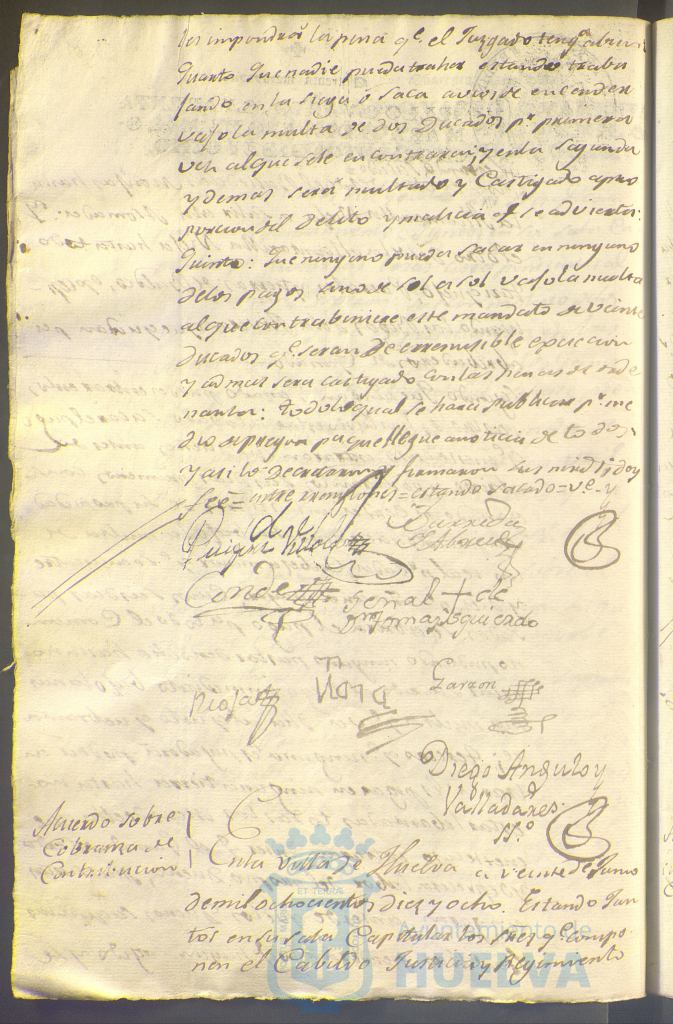 les impondra la pena qe. el Juzgado tenga abien:
Quarto Que nadie pueda traher estando traba
jando en la siega ó saca avios de encender
vajo la multa de dos Ducados pr. primera
vez al que se le encontrare, y en la segunda
y demas sera multado y Castigado apro
porcion del Delito y malicia qe. se advierta:
Quinto: Que ninguno pueda sacar en ninguno
delos pagos sino de sol a sol vajo la multa
al que contrabiniere este mandato de veinte
Ducados qe. seran de erremisible execucion
y ademas sera castigado con las penas de orde
nanza: todo lo qual se hara Publicar pr. me
dio de pregon pa. que llegue a noticia de todos
y asi lo Decretaron y firmaron sus mrds. doy
fee = entre renglones = estando = sacado = ve. y
Conde
Señal + de
Dn. Tomas Izquierdo
Garzon
Diego Angulo y
Valladares
SSno.
Acuerdo sobre
Cobranza de
Contribucion
En la Villa de Huelva a veinte de Junio
de mil ochocientos diez y ocho. Estando Jun
tos en su sala Capitular los Sres. qe. compo
nen el Cabildo Justicia y Regimiento
Ayuntamiento de
HUELVA